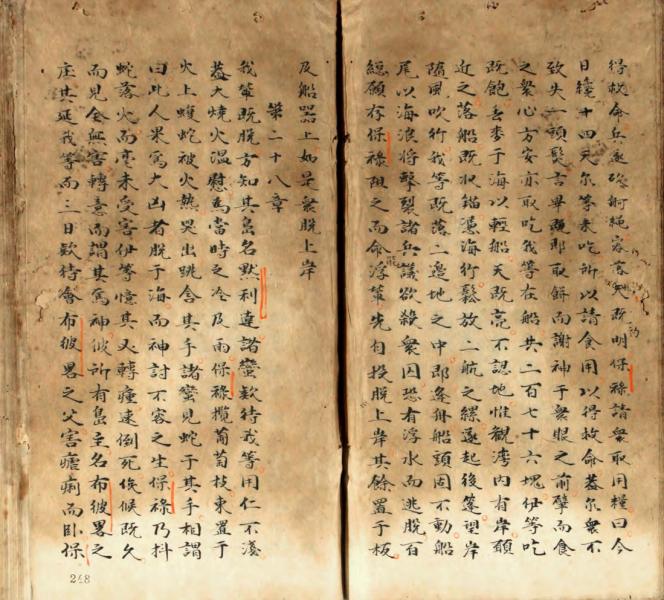 得救命兵遂砍舸繩容落矣既明保祿請衆取用糧曰今
日纔十四天尔等来吃所以請食用以得救命葢尔衆不
致失一頭髮言畢既即取餅而謝神于衆眼之前擘而食
之衆心方安亦取吃我等在船共二百七十六塊伊等吃
既飽丟麥于海以輕船天既亮不認地惟観湾內有岸願
近之落船既收錨憑海行鬆放二航之縲遂起後篷望岸
隨風吹行我等既落二邉地之中即逄舟船頭固不動船
尾以海浪將擊裂諸兵議欲殺衆囚恐有浮水而逃脫百
總願存保祿阻之而命能浮筭先自投脫上岸其餘置于板
及船噐上如是衆脫上岸
第二十八章
我軰既脫方知其島名默利達諸蠻欵待我等用仁不淺
葢大燒火溫慰為當時之冷及雨保祿攬葡萄枝束置于
火上蝮蛇被火熱哭出跳含其手諸蠻見蛇于其手相謂
曰此人果為大凶者脫于海而神討不容之生保祿乃抖
蛇落火而毫未受害伊等憶其又轉瘇速倒死俟候既久
而見全無害轉意而謂其為神彼所有島主名布彼畧之
庄其延我等而三日欵待會布彼畧之父害瘧痢而卧保
248